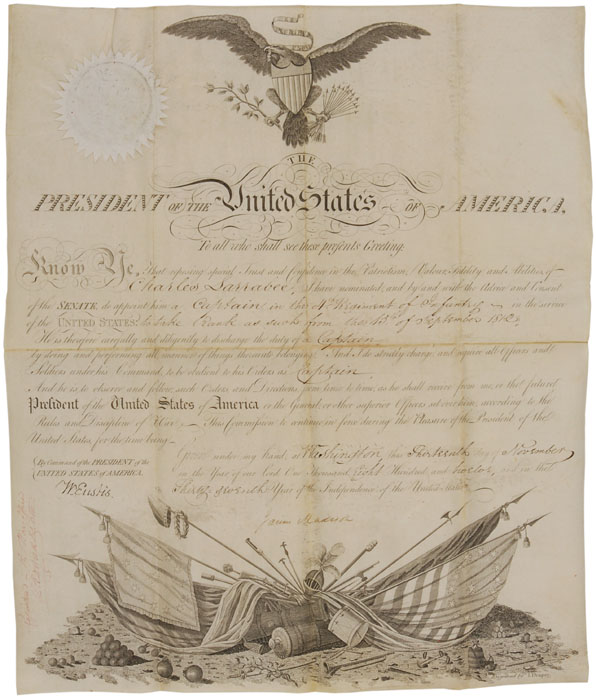 THE
PRESIDENT OF THE United States OF AMERICA.
To all who shall see these presents Greeting.
Know Ye, That reposing special Trust and Confidence in the Patriotism, Valour, Fidelity and Abilities of
Charles Larrabee, I have nominated, and by and with the Advice and Consent
of the SENATE, do appoint him a Captain in the Regiment of Infantry in the service
of the UNITED STATES: to take Rank as such from the of September 1812.
He is therefore carefully and diligently to discharge the duty of a Captain
by doing and performing all manner of things thereunto belonging. And I do strictly charge, and require all Officers and
Soldiers under his Command, to be obedient to his Orders as Captain
And he is to observe and follow such Orders and Directions from time to time, as he shall receive from me, or the future
President of the United States of America or the General or other superior Officers set over him, according to the
Rules and Discipline of War. This Commission to continue in force during the Pleasure of the President of the
United States, for the time being.
Given under my hand, at Washington this day of November
in the Year of our Lord One Thousand Eight Hundred and twelve and in the
Thirty seventh Year of the Independence of the United States.
By Command of the PRESIDENT of the
UNITED STATES OF AMERICA.
W. Eustis.
James Madison